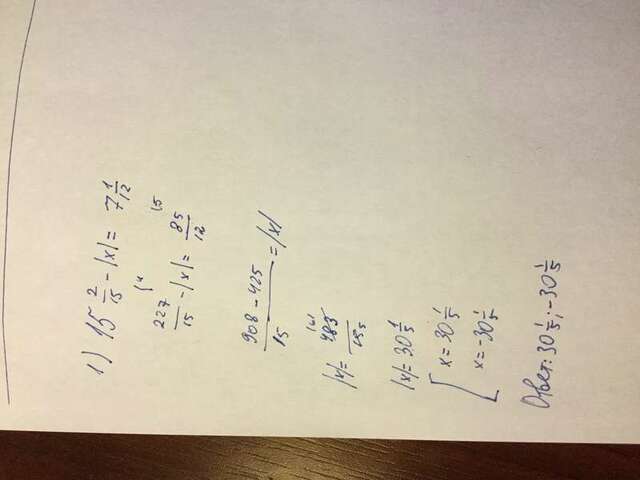 1) 15 2/15 - |x| = 7 1/12
227/15 - |x| = 85/12
(908 - 425)/15 = |x|
|x| = 483/15
|x| = 30 1/5
x = 30 1/5
x = -30 1/5
Ответ: 30 1/5; -30 1/5